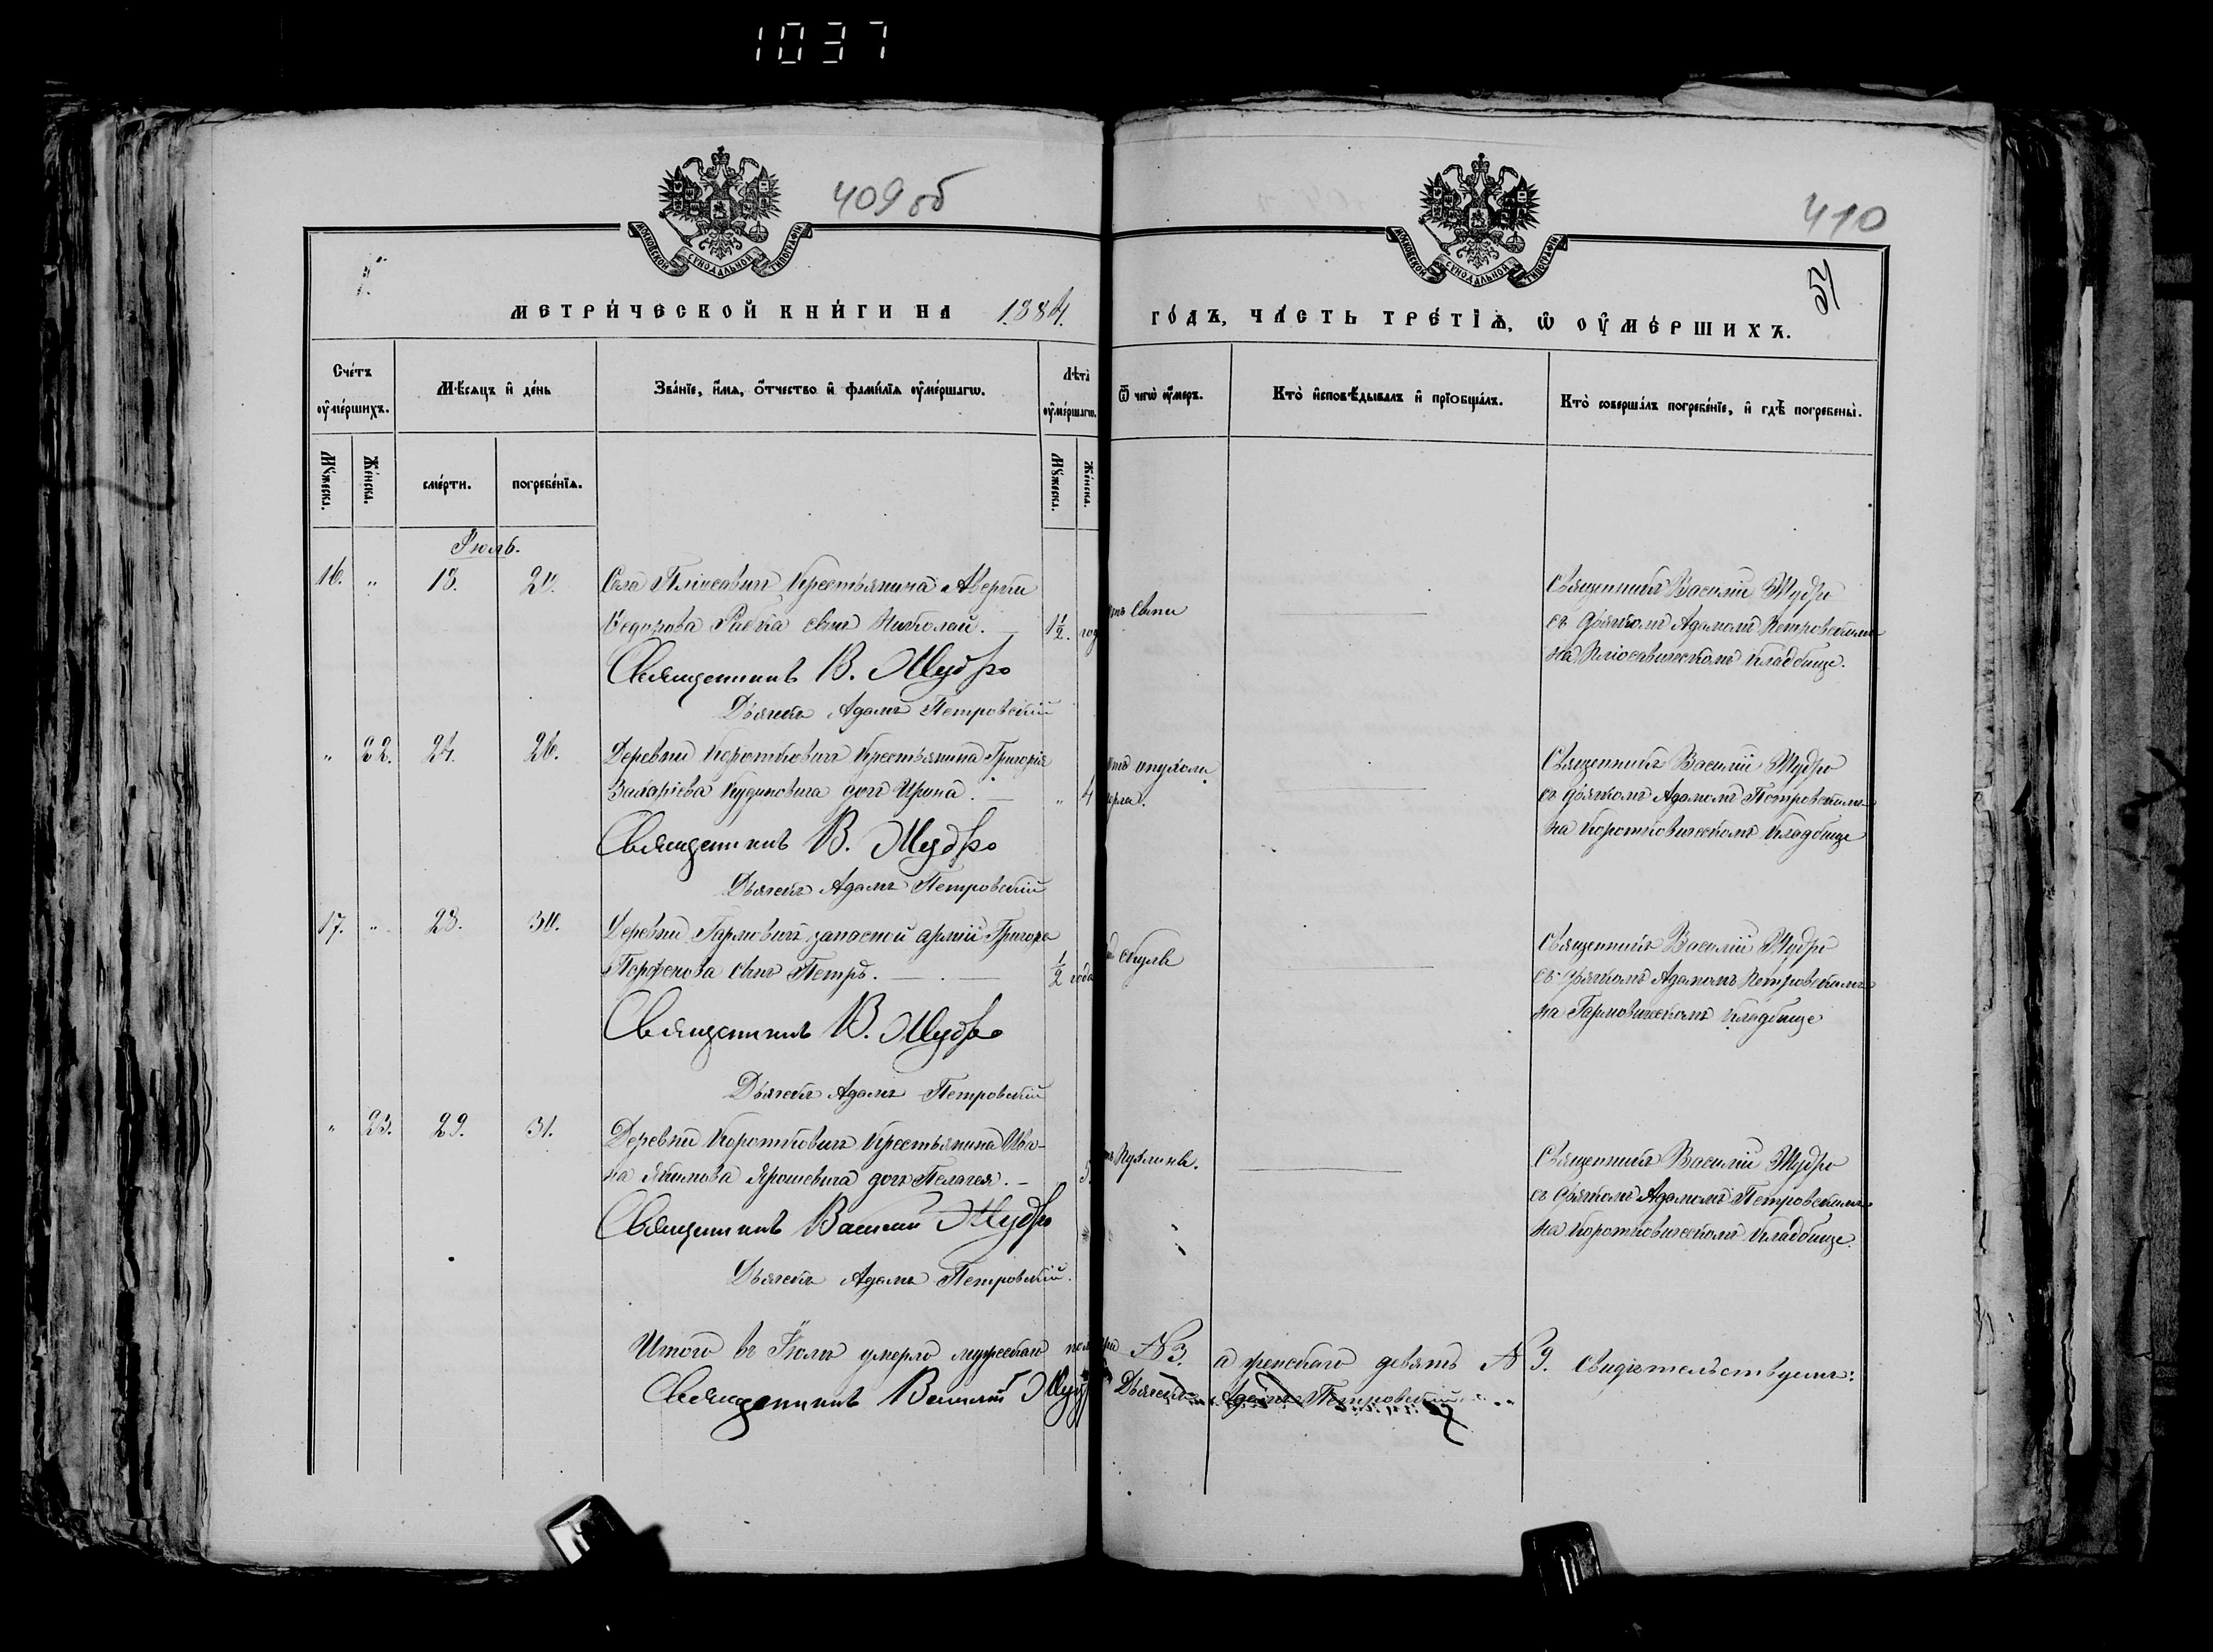 1037
409 об
410
МОСКОВСКОЙ СѴНОДАЛЬНОЙ ТИПОГРАФІИ
МОСКОВСКОЙ СѴНОДАЛЬНОЙ ТИПОГРАФІИ
54
МЕТРИ́ЧЕСКОЙ КНИ́ГИ НА 1884. ГО́ДЪ, ЧА́СТЬ ТРЕ́ТІѦ, Ѡ҆ ОУ҆МЕ́РШИХЪ.
Сче́тъ оу҆ме́ршихъ.
Мѣ́сяцъ и҆ де́нь
Зва́нїе, и҆́мѧ, ѻ҆́тчество и҆ фами́лїѧ оу҆ме́ршагѡ.
Лѣта̀ оу҆ме́ршагѡ.
Ѿ чегѡ̀ оу҆́меръ.
Кто̀ и҆сповѣ́дывалъ и҆ прїобща́лъ.
Кто̀ соверша́лъ погребе́нїе, и҆ гдѣ̀ погребены̀.
Мꙋ́жеска.
Же́нска.
сме́рти.
погребе́нїѧ.
Мꙋ́жеска.
Же́нска.
Іюль.
16. „ 18. 20. Села Пліосавичъ Крестьянина Аверкія
Ѳедорова сынъ Николай. — 1½. год
Священникъ В. Мудро
Дьячекъ Адамъ Петровскій
Священникъ Василій Мудро
съ дьячкомъ Адамомъ Петровскимъ
на кладбище.
„ 22. 24. 26. Деревни Коротковичъ Крестьянина Григорія
Захаріева Кудиновича дочь Ирина. — „ 4 отъ опухоли
горла.
Священникъ В. Мудро
Дьячекъ Адамъ Петровскій
Священникъ Василій Мудро
съ дьячкомъ Адамомъ Петровскимъ
на Коротковическомъ кладбище
17. „ 28. 30. Деревни Гармовичъ запасной арміи Григора
сынъ Петръ. — ½ года
Священникъ В. Мудро
Дьячекъ Адамъ Петровскій
Священникъ Василій Мудро
съ дьячкомъ Адамомъ Петровскимъ
на Гармовическомъ кладбище
„ 23. 29. 31. Деревни Коротковичъ Крестьянина
на Якимова Ярошевича дочь Пелагея. — 5
Священникъ Василій Мудро
Дьячекъ Адамъ Петровскій.
Священникъ Василій Мудро
съ дьячкомъ Адамомъ Петровскимъ
на Коротковическомъ кладбище.
Итого въ Іюлѣ умерло мужескаго пола три № 3. а женскаго девять № 9. Свидѣтельствуемъ:
Священникъ Василій Мудро Дьячекъ Адамъ Петровскій